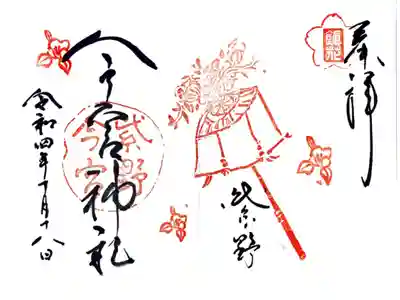 奉拝
紫野
今宮神社
紫野
今宮
令和四年十月十八日